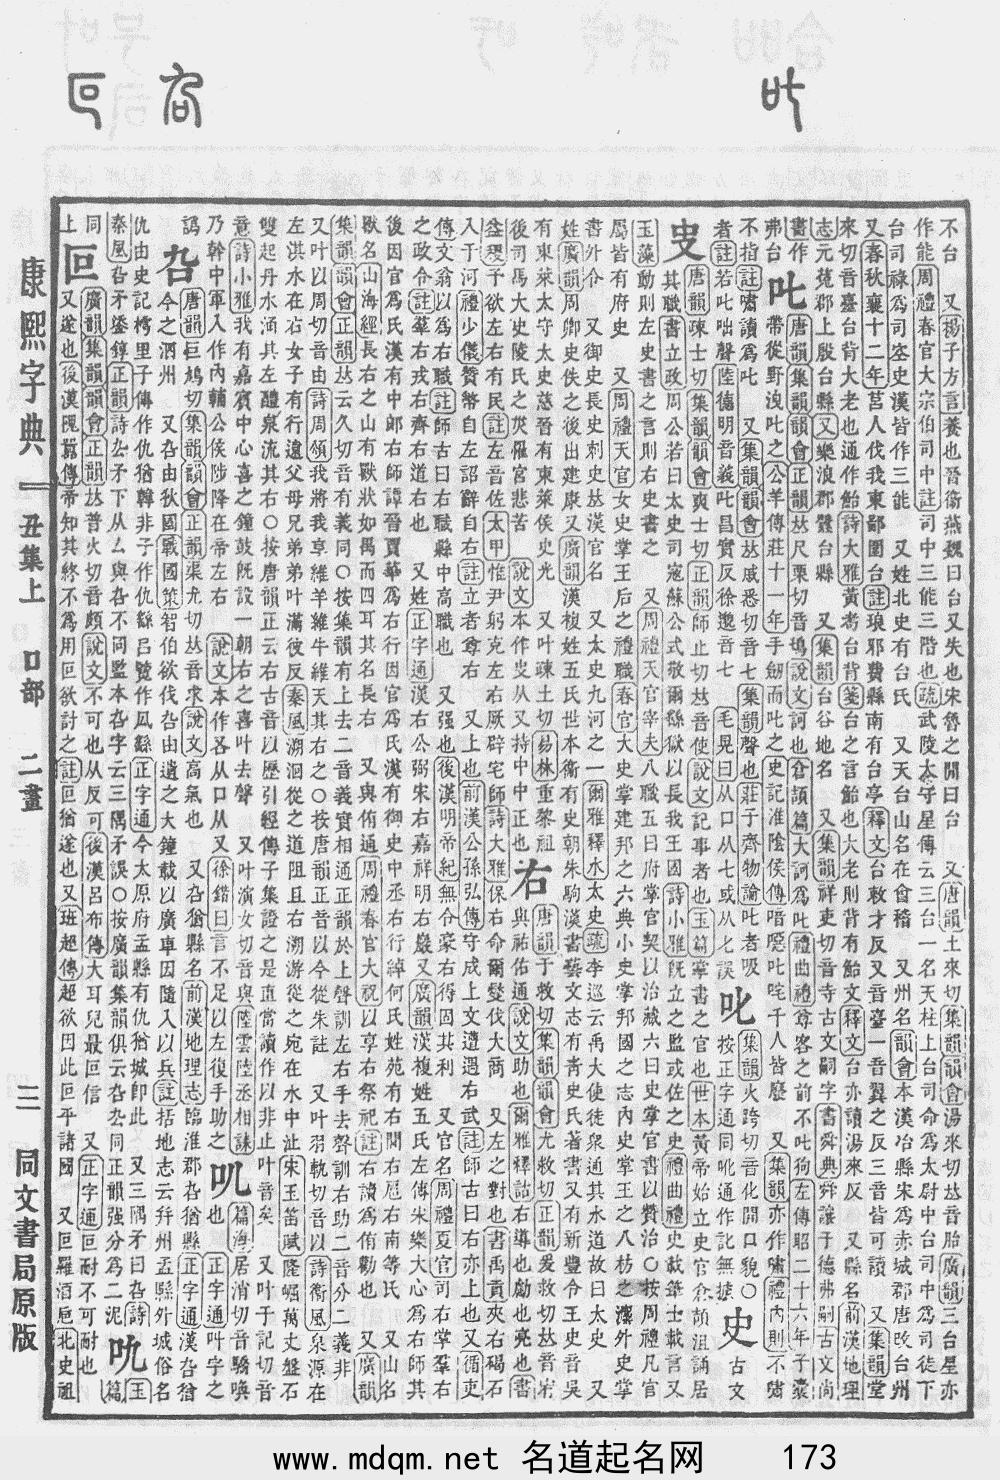 不台 又揚子方言養也晉衞燕魏曰台又失也宋魯之閒曰台 又唐韻土來切集韻韻會湯來切𠀤音胎廣韻三台星亦
作能周禮春官大宗伯司中註司中三能三階也疏武陵太守星傳云三台一名天柱上台司命爲太尉中台司中爲司徒下
台司祿爲司空史漢皆作三能 又姓北史有台氏 又天台山名在會稽 又州名韻會本漢冶縣宋爲赤城郡唐改台州
又春秋襄十二年莒人伐我東鄙圍台註琅邪費縣南有台亭釋文台敕才反又音臺一音翼之反三音皆可讀 又集韻堂
來切音臺台背大老也通作鮐詩大雅黃耇台背箋台之言鮐也大老則背有鮐文釋文台亦讀湯來反 又縣名前漢地理
志元菟郡上殷台縣又樂浪郡蠶台縣 又集韻台谷地名 又集韻祥吏切音寺古文嗣字書舜典舜讓于德弗嗣古文尚
書作
弗台
叱
唐韻集韻韻會正韻𠀤尺栗切音鴙說文訶也倉頡篇大訶爲叱禮曲禮尊客之前不叱狗左傳昭二十六年子囊
帶從野洩叱之公羊傳莊十一年手劒而叱之史記淮隂侯傳喑噁叱咤千人皆廢 又集韻亦作嘯禮內則不嘯
不指註嘯讀爲叱 又集韻韻會𠀤戚悉切音七集韻聲也莊子齊物論叱者吸
者註若叱咄聲陸德明音義叱昌實反徐邈音七 毛晃曰从口从七或从匕誤
𠮟
集韻火跨切音化開口貌○
按正字通同吪通作訛無據
史
古文
𠭇
唐韻疎士切集韻韻會爽士切正韻師止切𠀤音使說文記事者也玉篇掌書之官也世本黃帝始立史官倉頡沮誦居
其職書立政周公若曰太史司寇蘇公式敬爾繇獄以長我王國詩小雅旣立之監或佐之史禮曲禮史載筆士載言又
玉藻動則左史書之言則右史書之 又周禮天官宰夫八職五曰府掌官契以治藏六曰史掌官書以贊治○按周禮凡官
屬皆有府史 又周禮天官女史掌王后之禮職春官大史掌建邦之六典小史掌邦國之志內史掌王之八枋之灋外史掌
書外令 又御史長史刺史𠀤漢官名 又太史九河之一爾雅釋水太史疏李巡云禹大使徒衆通其水道故曰太史 又
姓廣韻周卿史佚之後出建康又廣韻漢複姓五氏世本衞有史朝朱駒漢書藝文志有靑史氏著書又有新豐令王史音吳
有東萊太守太史慈晉有東萊侯史光 又叶疎土切易林重黎祖
後司馬大史陵氏之災雁宮悲苦 說文本作㕜从又持中中正也
右
唐韻于救切集韻韻會尤救切正韻爰救切𠀤音宥
與祐佑通說文助也爾雅釋詁右導也勴也亮也書
益稷予欲左右有民註左音佐太甲惟尹躬克左右厥辟宅師詩大雅保右命爾燮伐大商 又左之對也書禹貢夾右碣石
入于河禮少儀贊幣自左詔辭自右註立者尊右 又上也前漢公孫弘傳守成上文遭遇右武註師古曰右亦上也又循吏
傳文翁以爲右職註師古曰右職縣中高職也 又强也後漢明帝紀無令豪右得固其利 又官名周禮夏官司右掌羣右
之政令註羣右戎右齊右道右也 又姓正字通漢右公弼宋右嘉祥明右巖又廣韻漢複姓五氏左傳宋樂大心爲右師其
後因官爲氏漢有中郎右師譚晉賈華爲右行因官爲氏漢有御史中丞右行綽何氏姓苑有右閭右扈右南等氏 又山名
獸名山海經長右之山有獸狀如禺而四耳其名長右 又與侑通周禮春官大祝以享右祭祀註右讀爲侑勸也 又廣韻
集韻韻會正韻𠀤云久切音有義同○按集韻有上去二音義實相通正韻於上聲訓左右手去聲訓右助二音分二義非
又叶以周切音由詩周頌我將我享維羊維牛維天其右之○按唐韻正音以今從朱註 又叶羽軌切音以詩衞風泉源在
左淇水在右女子有行遠父母兄弟弟叶滿彼反秦風溯洄從之道阻且右溯游從之宛在水中沚宋玉笛賦隆崛萬丈盤石
雙起丹水涌其左醴泉流其右○按唐韻正云右古音以歷引經傳子集證之是直當讀作以非止叶音矣 又叶于記切音
意詩小雅我有嘉賔中心喜之鐘鼓旣設一朝右之喜叶去聲 又叶演女切音與陸雲陸丞相誄
乃幹中軍入作內輔公侯陟降在帝左右 說文本作㕛从口从又徐鍇曰言不足以左復手助之
叽
篇海居消切音驕喚
也 正字通叫字之
譌
叴
唐韻巨鳩切集韻韻會正韻渠尤切𠀤音求說文高氣也 又叴猶縣名前漢地理志臨淮郡叴猶縣正字通漢叴猶
今之泗州 又叴由狄國戰國策智伯欲伐叴由遺之大鐘載以廣車因隨入以兵註括地志云幷州盂縣外城俗名
仇由史記樗里子傳作仇猶韓非子作仇繇呂覽作厹繇正字通今太原府孟縣有仇猶城卽此 又三隅矛曰叴詩
秦風叴矛鋈錞正韻詩厹矛下从厶與叴不同監本叴字云三隅矛誤○按廣韻集韻俱云叴厹同正韻强分爲二泥
叿
玉篇
同
上
叵
廣韻集韻韻會正韻𠀤普火切音頗說文不可也从反可後漢呂布傳大耳兒最叵信 又正字通叵耐不可耐也
又遂也後漢隗囂傳帝知其終不爲用叵欲討之註叵猶遂也又班超傳超欲因此叵平諸國 又叵羅酒巵北史祖
康熙字典
丑集上 口部 二畫
三
同文書局原版
www.mdqm.net 名道起名网 173